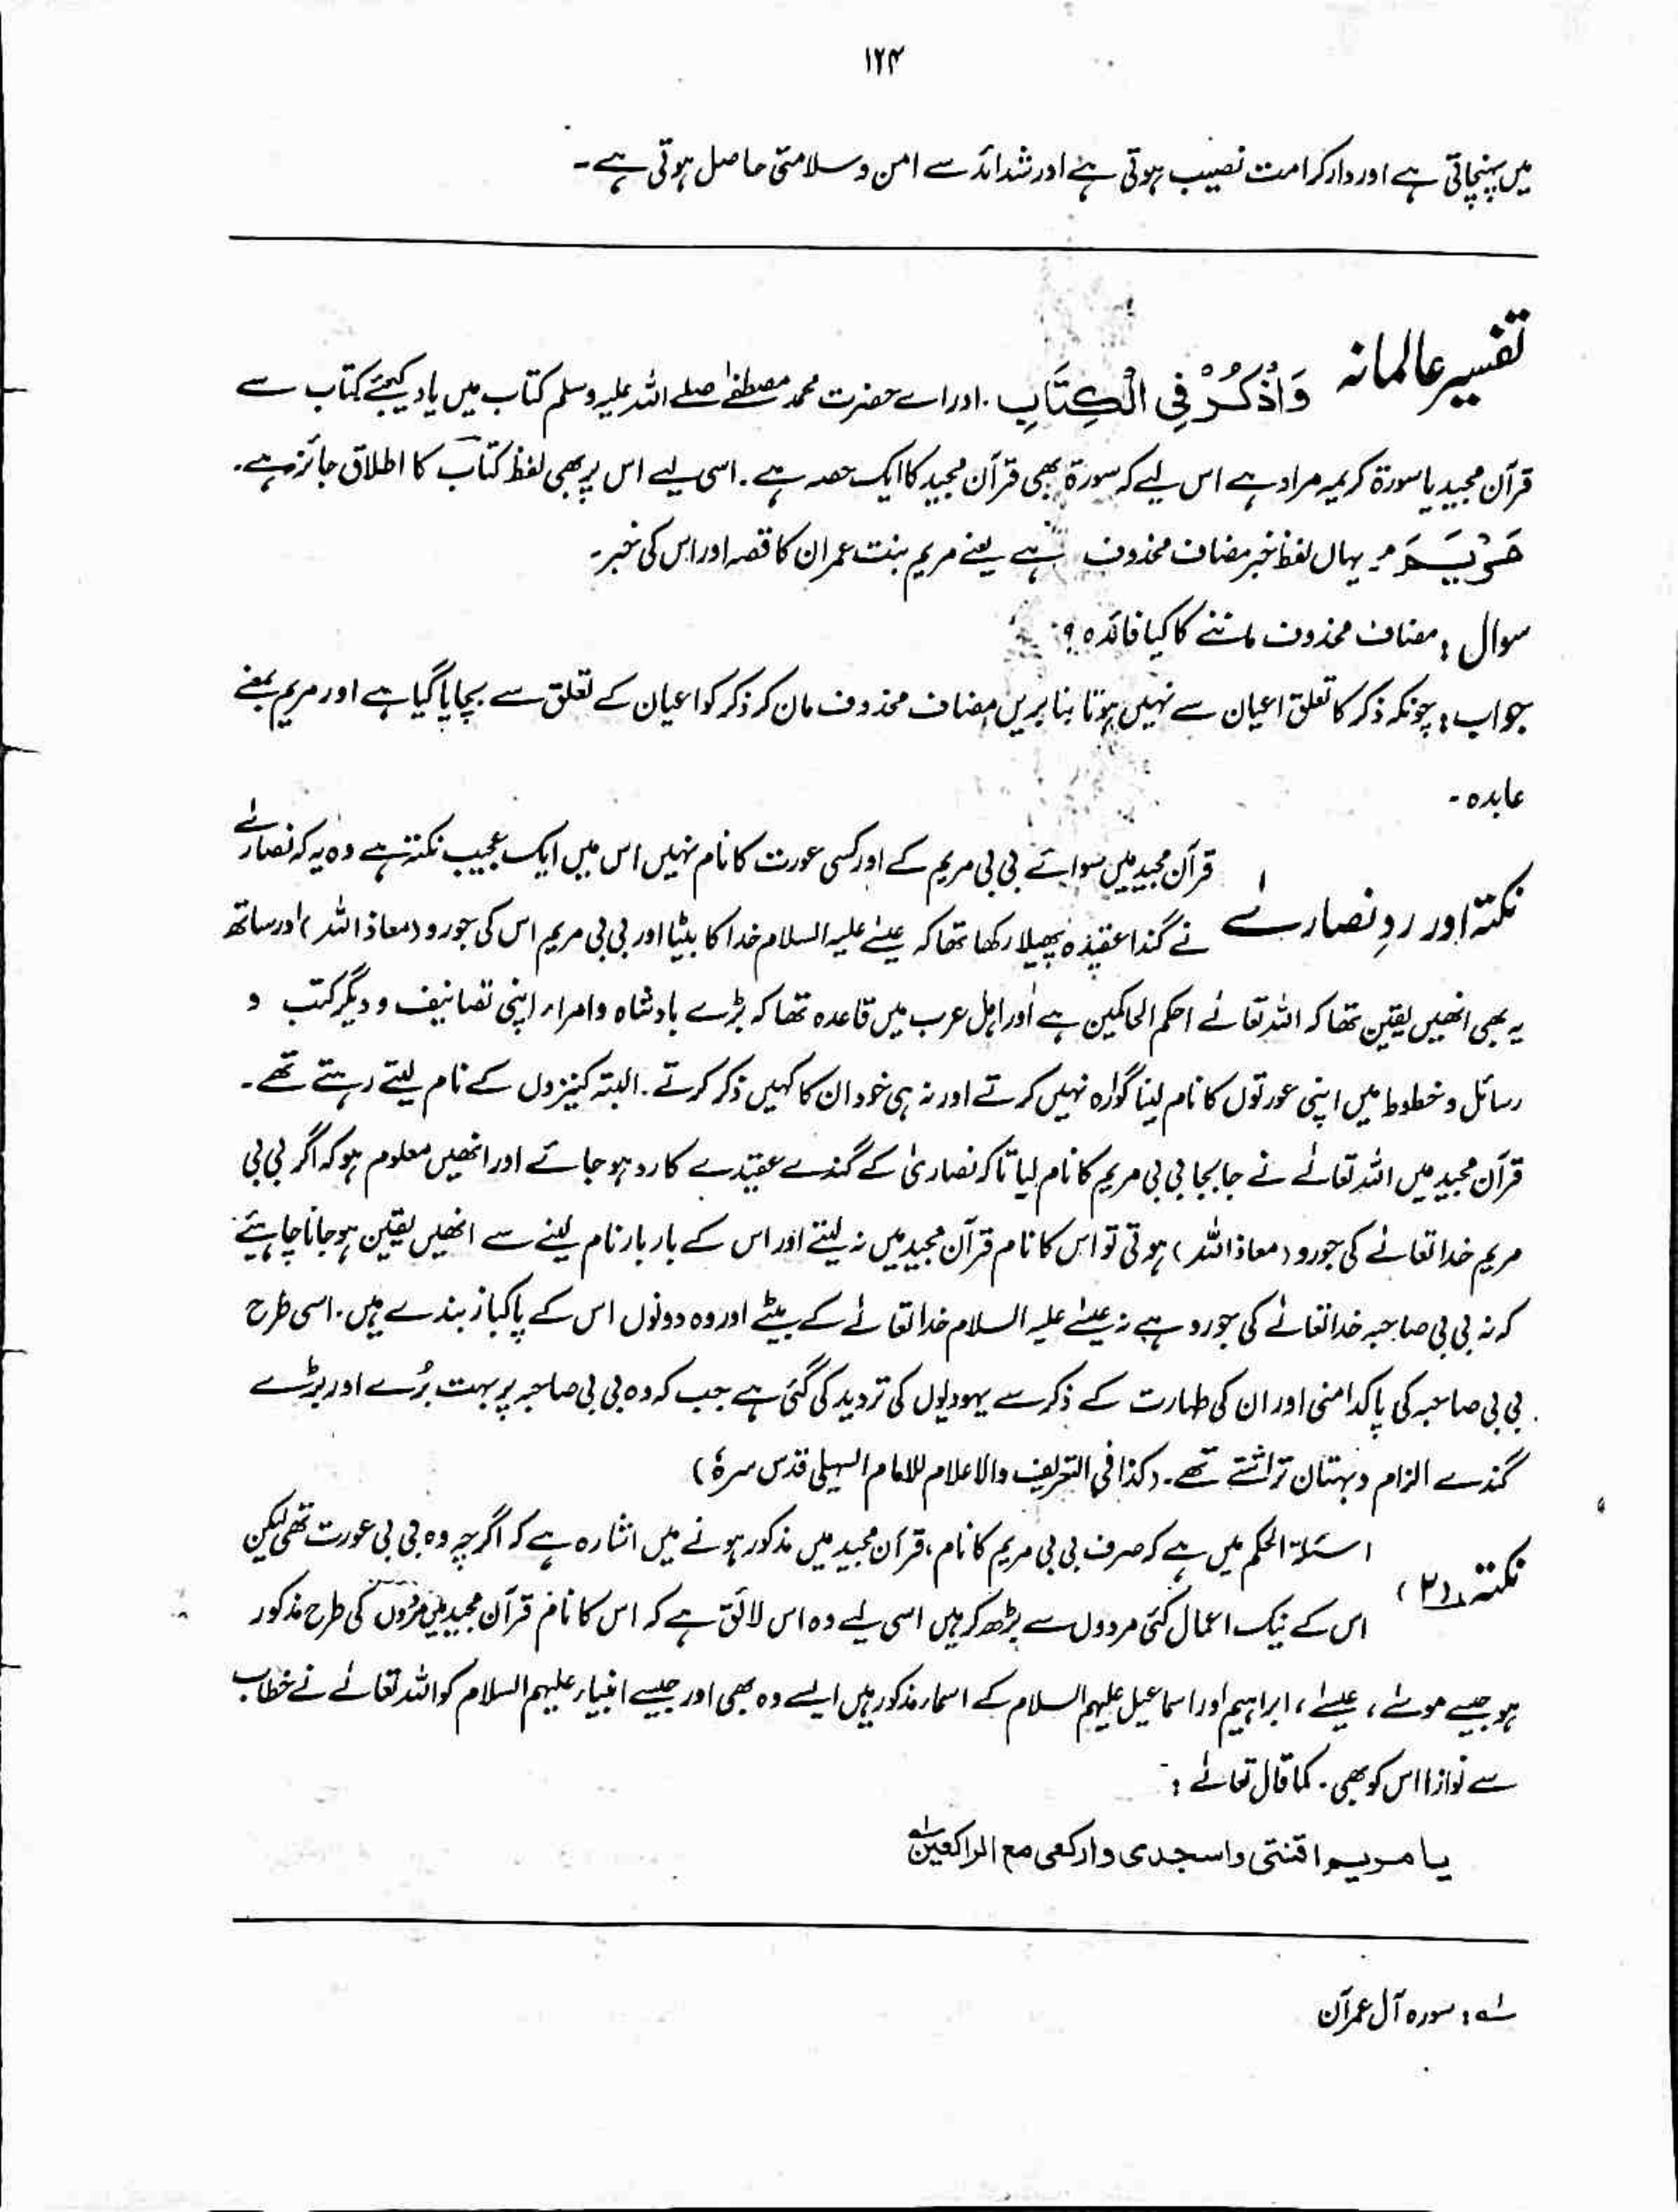 ۱۲۴
میں پہنچاتی ہے اور دار کرامت نصیب ہوتی ہے اور شدائد سے امن و سلامتی حاصل ہوتی ہے۔
تفسیر عالمانہ وَاذْكُرْ فِي الْكِتَابِ. اور اے حضرت محمد مصطفےٰ صلے اللہ علیہ وسلم کتاب میں یاد کیجئے کتاب سے
قرآن مجید یا سورۃ کریمہ مراد ہے اس لیے کہ سورۃ بھی قرآن مجید کا ایک حصہ ہے۔ اسی لیے اس پر بھی لفظ کتاب کا اطلاق جائز ہے۔
مَرْيَمَ ۔ یہاں لفظ خبر مضاف محذوف ہے یعنے مریم بنت عمران کا قصہ اور اس کی خبر۔
سوال : مضاف محذوف ماننے کا کیا فائدہ ؟
جواب : چونکہ ذکر کا تعلق اعیان سے نہیں ہوتا بنا بریں مضاف محذوف مان کر ذکر کو اعیان کے تعلق سے بچایا گیا ہے اور مریم بمعنے
عابدہ ۔
قرآن مجید میں سوائے بی بی مریم کے اور کسی عورت کا نام نہیں اس میں ایک عجیب نکتہ ہے وہ یہ کہ نصاریٰ
نکتہ اور ردِ نصاریٰ نے گندا عقیدہ پھیلا رکھا تھا کہ عیسےٰ علیہ السلام خدا کا بیٹا اور بی بی مریم اس کی جورو (معاذ اللہ) اور ساتھ
یہ بھی انھیں یقین تھا کہ اللہ تعالےٰ احکم الحاکمین ہے اور اہل عرب میں قاعدہ تھا کہ بڑے بادشاہ و امراء اپنی تصانیف و دیگر کتب و
رسائل و خطوط میں اپنی عورتوں کا نام لینا گوارہ نہیں کرتے اور نہ ہی خود ان کا کہیں ذکر کرتے۔ البتہ کنیزوں کے نام لیتے رہتے تھے۔
قرآن مجید میں اللہ تعالےٰ نے جا بجا بی بی مریم کا نام لیا تاکہ نصاریٰ کے گندے عقیدے کا رد ہو جائے اور انھیں معلوم ہو کہ اگر بی بی
مریم خدا تعالےٰ کی جورو (معاذ اللہ) ہوتی تو اس کا نام قرآن مجید میں نہ لیتے اور اس کے بار بار نام لینے سے انھیں یقین ہو جانا چاہیئے
کہ نہ بی بی صاحبہ خدا تعالےٰ کی جورو ہے نہ عیسےٰ علیہ السلام خدا تعالےٰ کے بیٹے اور وہ دونوں اس کے پاکباز بندے ہیں۔ اسی طرح
بی بی صاحبہ کی پاکدامنی اور ان کی طہارت کے ذکر سے یہودیوں کی تردید کی گئی ہے جب کہ وہ بی بی صاحبہ پر بہت بُرے اور بڑے
گندے الزام و بہتان تراشتے تھے۔ (کذا فی التعریف والاعلام للامام السہیلی قدس سرہٗ)
اسئلۃ الحکم میں ہے کہ صرف بی بی مریم کا نام، قرآن مجید میں مذکور ہونے میں اشارہ ہے کہ اگرچہ وہ بی بی عورت تھی لیکن
نکتہ (۲) اس کے نیک اعمال کئی مردوں سے بڑھ کر ہیں اسی لیے وہ اس لائق ہے کہ اس کا نام قرآن مجید میں مردوں کی طرح مذکور
ہو جیسے موسےٰ، عیسےٰ، ابراہیم اور اسماعیل علیہم السلام کے اسماء مذکور ہیں ایسے وہ بھی اور جیسے انبیاء علیہم السلام کو اللہ تعالےٰ نے خطاب
سے نوازا اس کو بھی۔ کما قال تعالےٰ :
یا مریم اقنتی واسجدی وارکعی مع الراکعین لہ
لہ : سورہ آل عمران